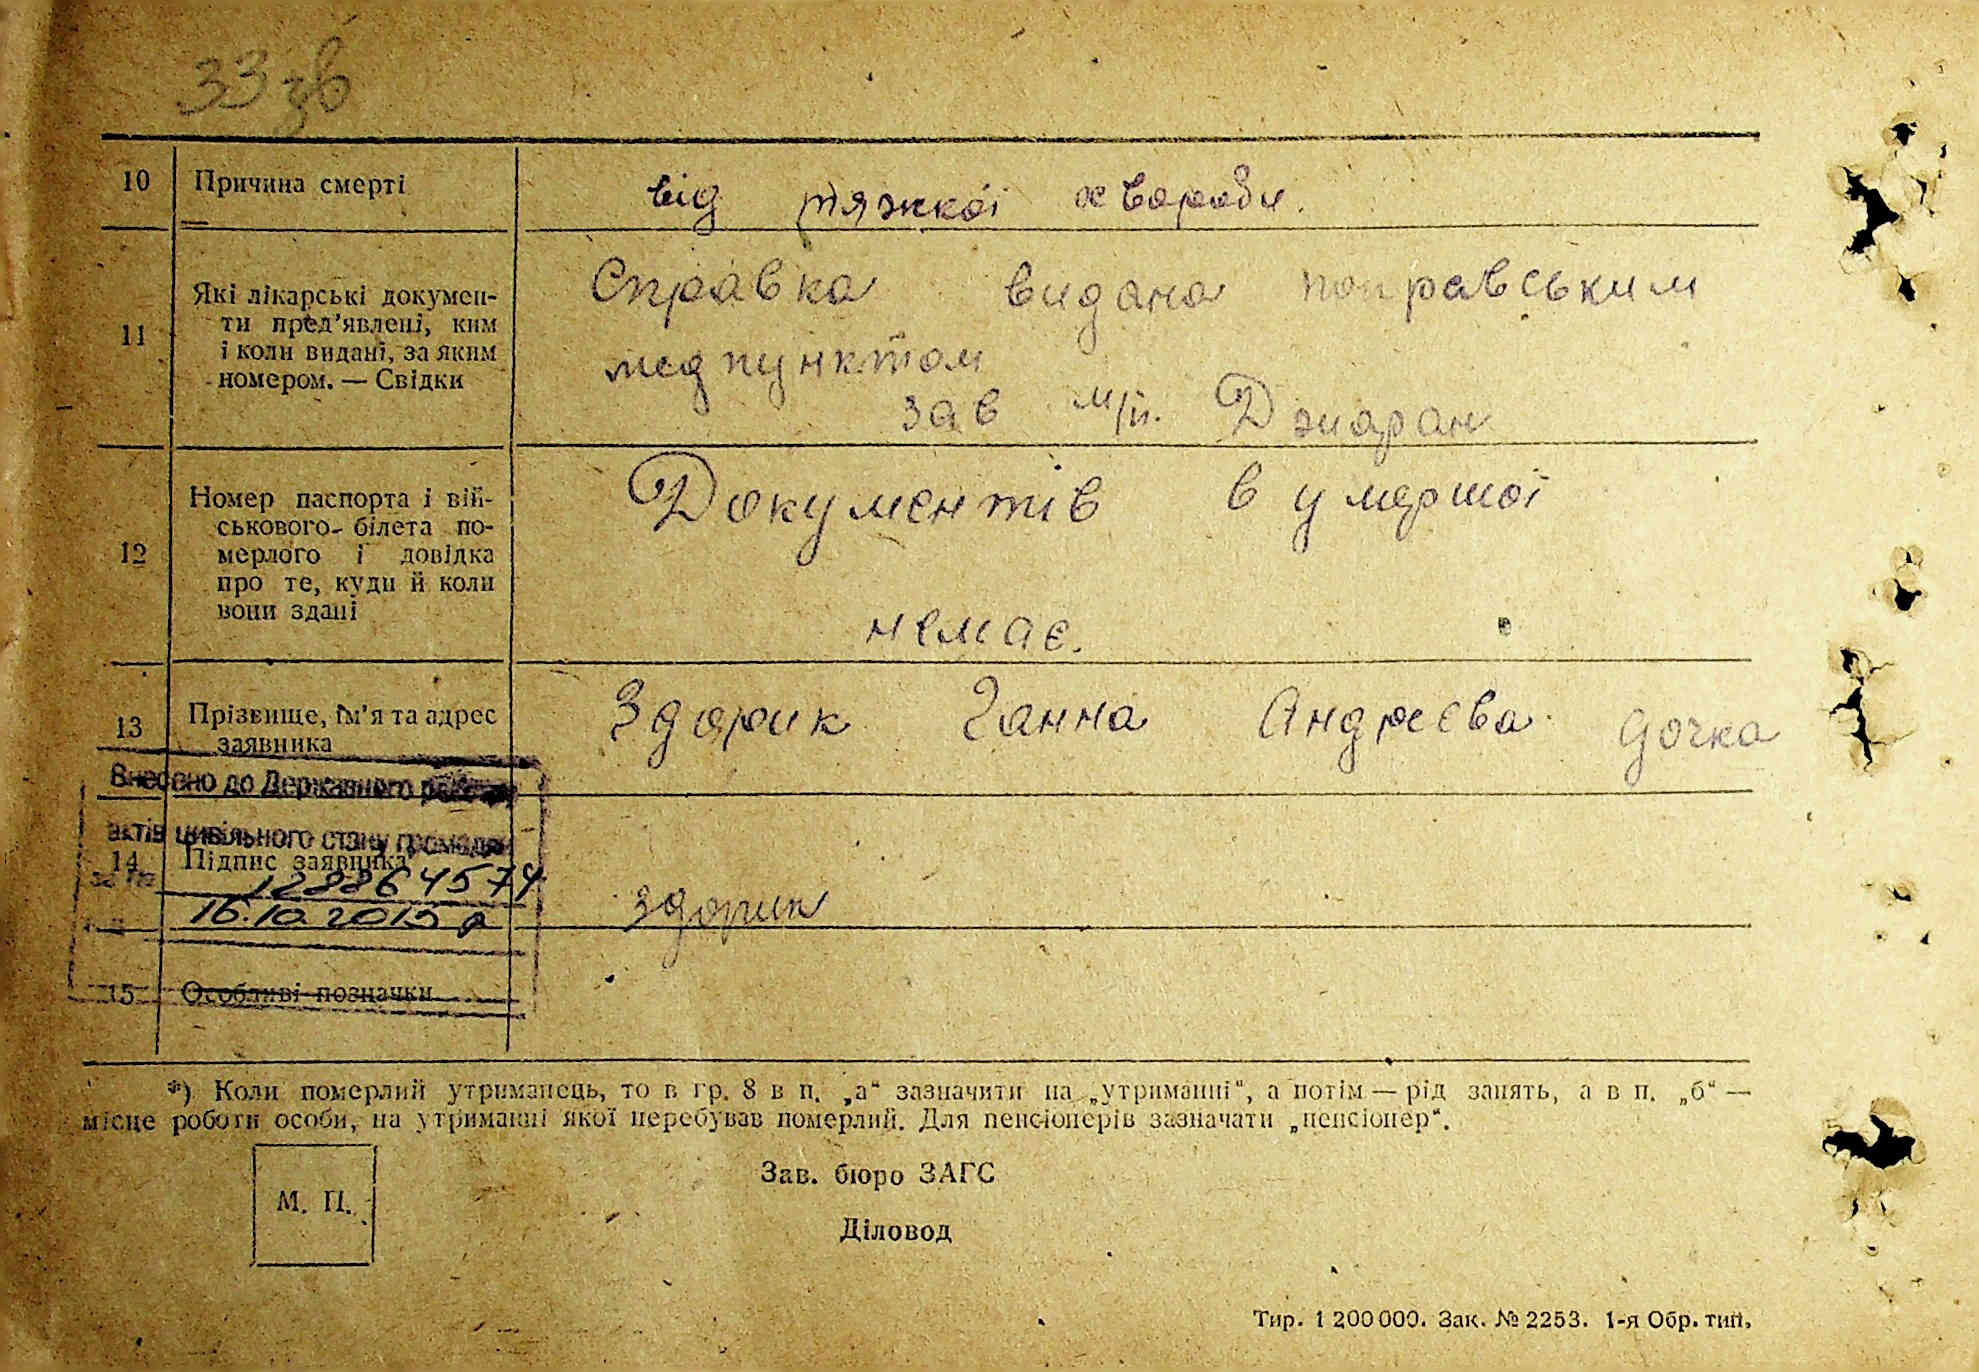 33 зв
10 Причина смерті від тяжкої хвороби.
11 Які лікарські документи пред'явлені, ким і коли видані, за яким номером. — Свідки
Справка видана поправським
медпунктом
зав м/п.
12 Номер паспорта і вій-
ськового білета по-
мерлого і довідка
про те, куди й коли
вони здані
Документів в умершої
немає.
13 Прізвище, ім'я та адрес
заявника
Здорик Ганна Андреєва дочка
Внесено до Державного
актів цивільного стану громадян
14 Підпис заявника
здорик
за №
16.10.2015 р
15 Особливі позначки
*) Коли померлий утриманець, то в гр. 8 в п. „а“ зазначити на „утриманні“, а потім — рід занять, а в п. „б“ —
місце роботи особи, на утриманні якої перебував померлий. Для пенсіонерів зазначати „пенсіонер“.
Зав. бюро ЗАГС
М. П.
Діловод
Тир. 1 200 000. Зак. № 2253. 1-я Обр. тип.